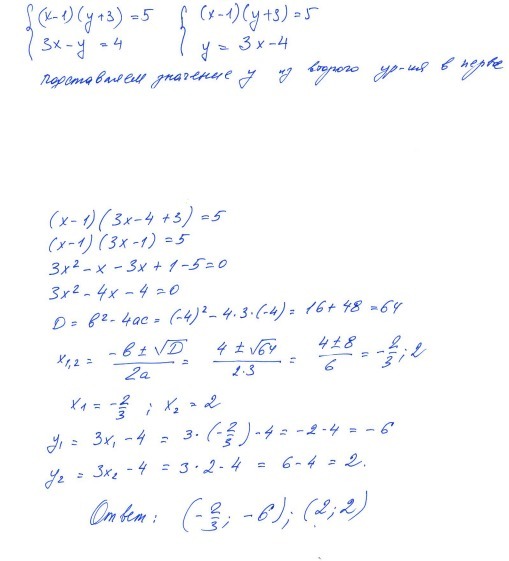 {(x-1)(y+3)=5 {(x-1)(y+3)=5
{3x-y=4 {y=3x-4
подставляем значение y из второго ур-ия в первое
(x-1)(3x-4+3)=5
(x-1)(3x-1)=5
3x²-x-3x+1-5=0
3x²-4x-4=0
D=b²-4ac=(-4)²-4·3·(-4)=16+48=64
x₁,₂=(-b±√D)/2a=(4±√64)/2·3=(4±8)/6=-2/3; 2
x₁=-2/3; x₂=2
y₁=3x₁-4=3·(-2/3)-4=-2-4=-6
y₂=3x₂-4=3·2-4=6-4=2.
Ответ: (-2/3; -6); (2; 2)